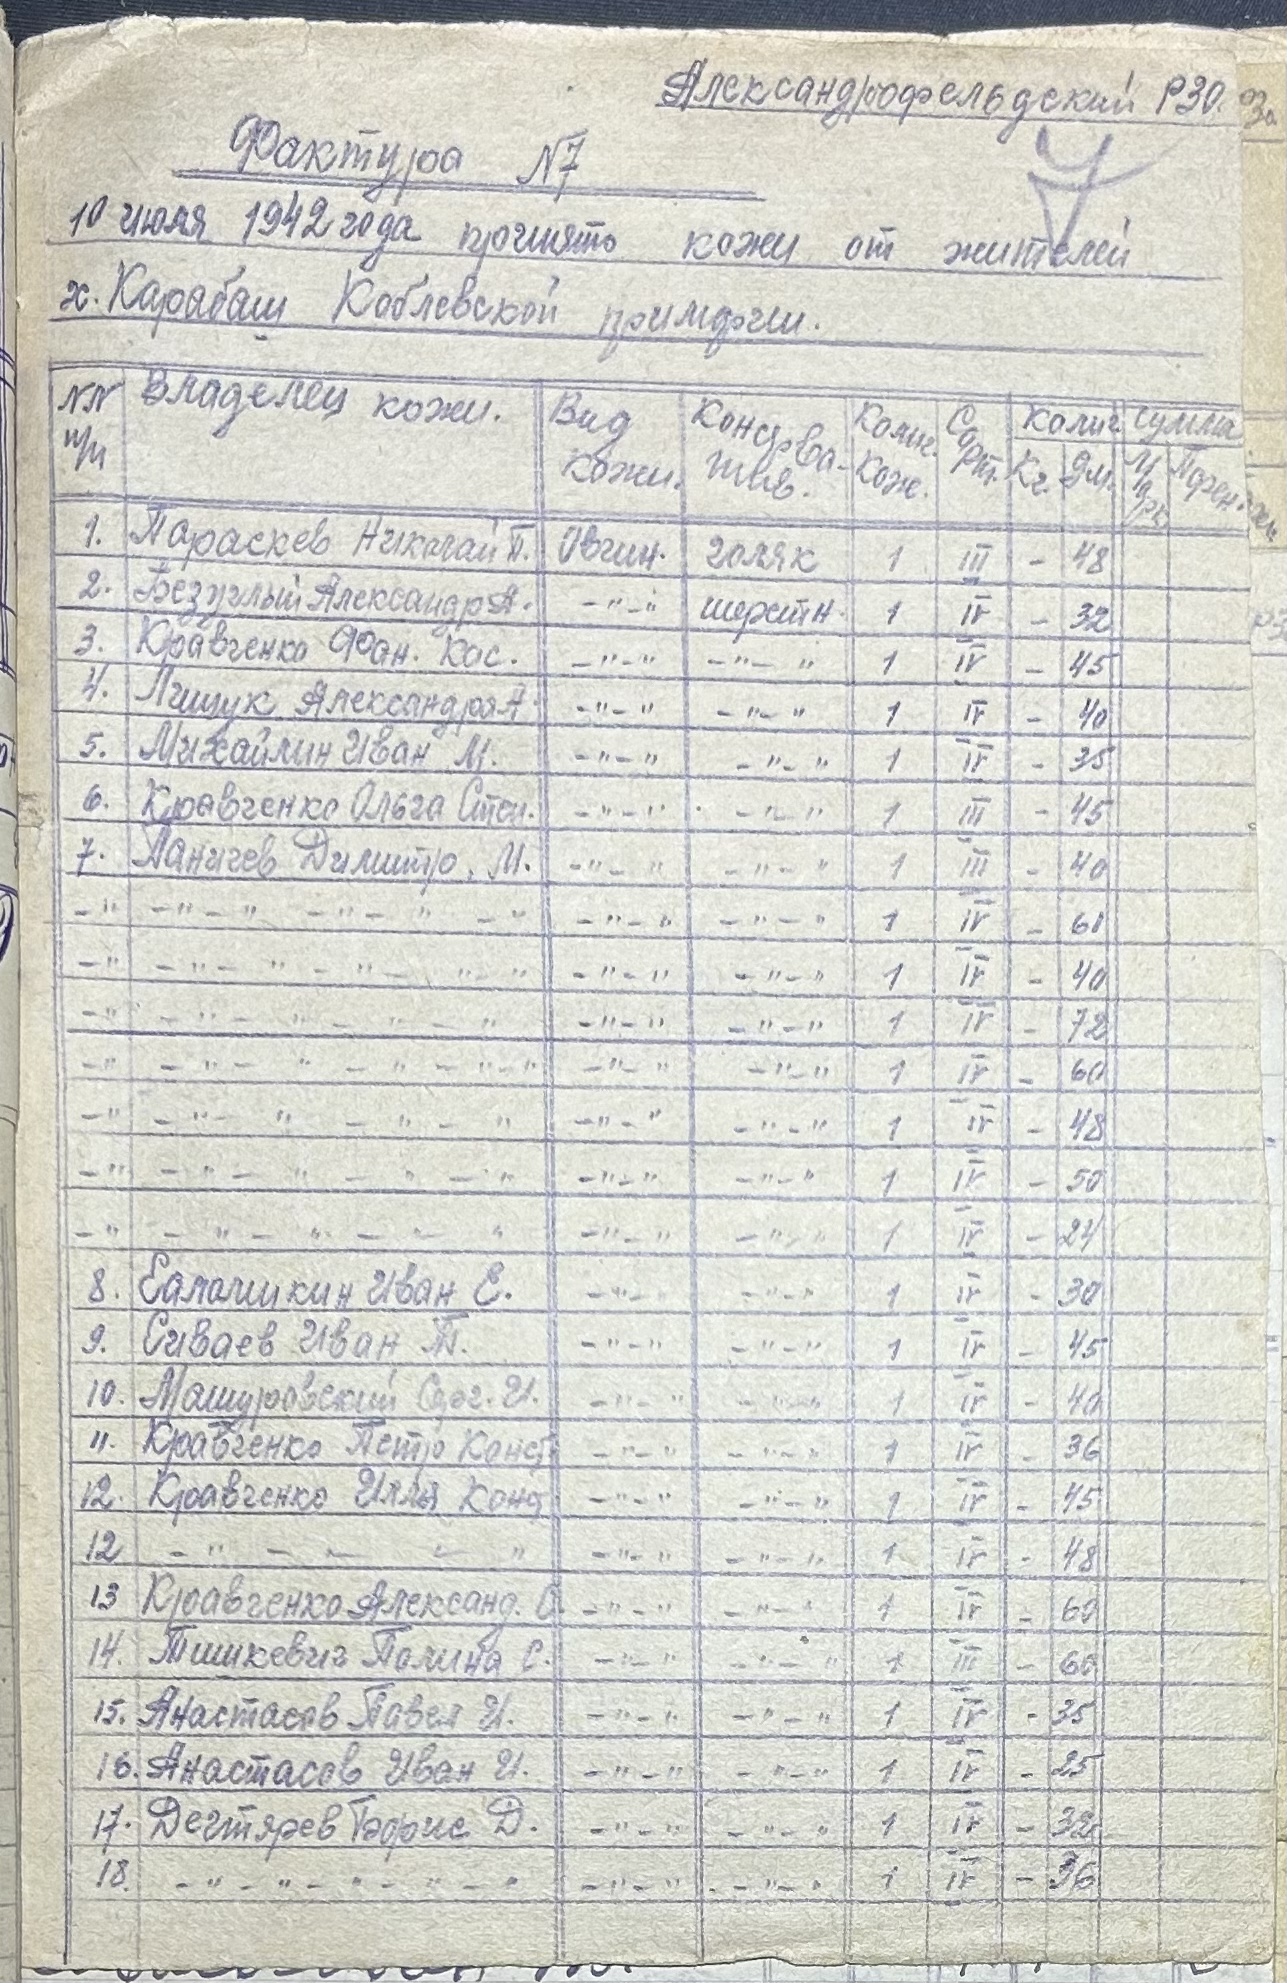 Александрофельдский РЗО.
Фактура №7
10 июля 1942 года принято кожи от жителей
х. Карабаш Коблевской примэрии.
NN п/п Владелец кожи. Вид кожи. Консерва-тия. Колич. кож. Сорт. Колич. Кг. дм. Сумма Марк. Пфен.
1. Параскев Николай П. Овчин. голяк 1 III - 48
2. Безуглый Александр А. -"-" шерстн. 1 IV - 32
3. Кравченко Фан. Кос. -"-" -"-" 1 IV - 45
4. Лищук Александра А -"-" -"-" 1 IV - 40
5. Михайлин Иван М. -"-" -"-" 1 IV - 35
6. Кравченко Ольга Степ. -"-" -"-" 1 III - 45
7. Паничев Димитр. М. -"-" -"-" 1 III - 40
-" -"-" -"-" -" -"-" -"-" 1 IV - 60
-" -"-" -"-" "-" -"-" -"-" 1 IV - 40
-" -"-" -"-" -" -"-" -"-" 1 IV - 72
-" -"-" -"-" -" -"-" -"-" 1 IV - 60
-" -"-" " -"-" -"-" -"-" 1 IV - 48
-" -"-" -"-" -" -"-" -"-" 1 IV - 50
-" -"-" -"-" -" -"-" -"-" 1 IV - 24
8. Иван Е. -"-" -"-" 1 IV - 30
9. Сиваев Иван П. -"-" -"-" 1 IV - 45
10. Машуровский Сер. И. -"-" -"-" 1 IV - 40
11. Кравченко Петр Конст -"-" -"-" 1 IV - 36
12. Кравченко Илля Конд -"-" -"-" 1 IV - 45
12 -" - - - " -"-" -"-" 1 IV - 48
13 Кравченко Александ. С. -"-" -"-" 1 IV - 60
14. Тишкевич Полина С. -"-" -"-" 1 III - 60
15. Анастасов Павел И. -"-" -"-" 1 IV - 35
16. Анастасов Иван И. -"-" -"-" 1 IV - 25
17. Дегтярев Борис Д. -"-" -"-" 1 IV - 32
18. -"-"-"-"-" -"-" -"-" 1 IV - 36